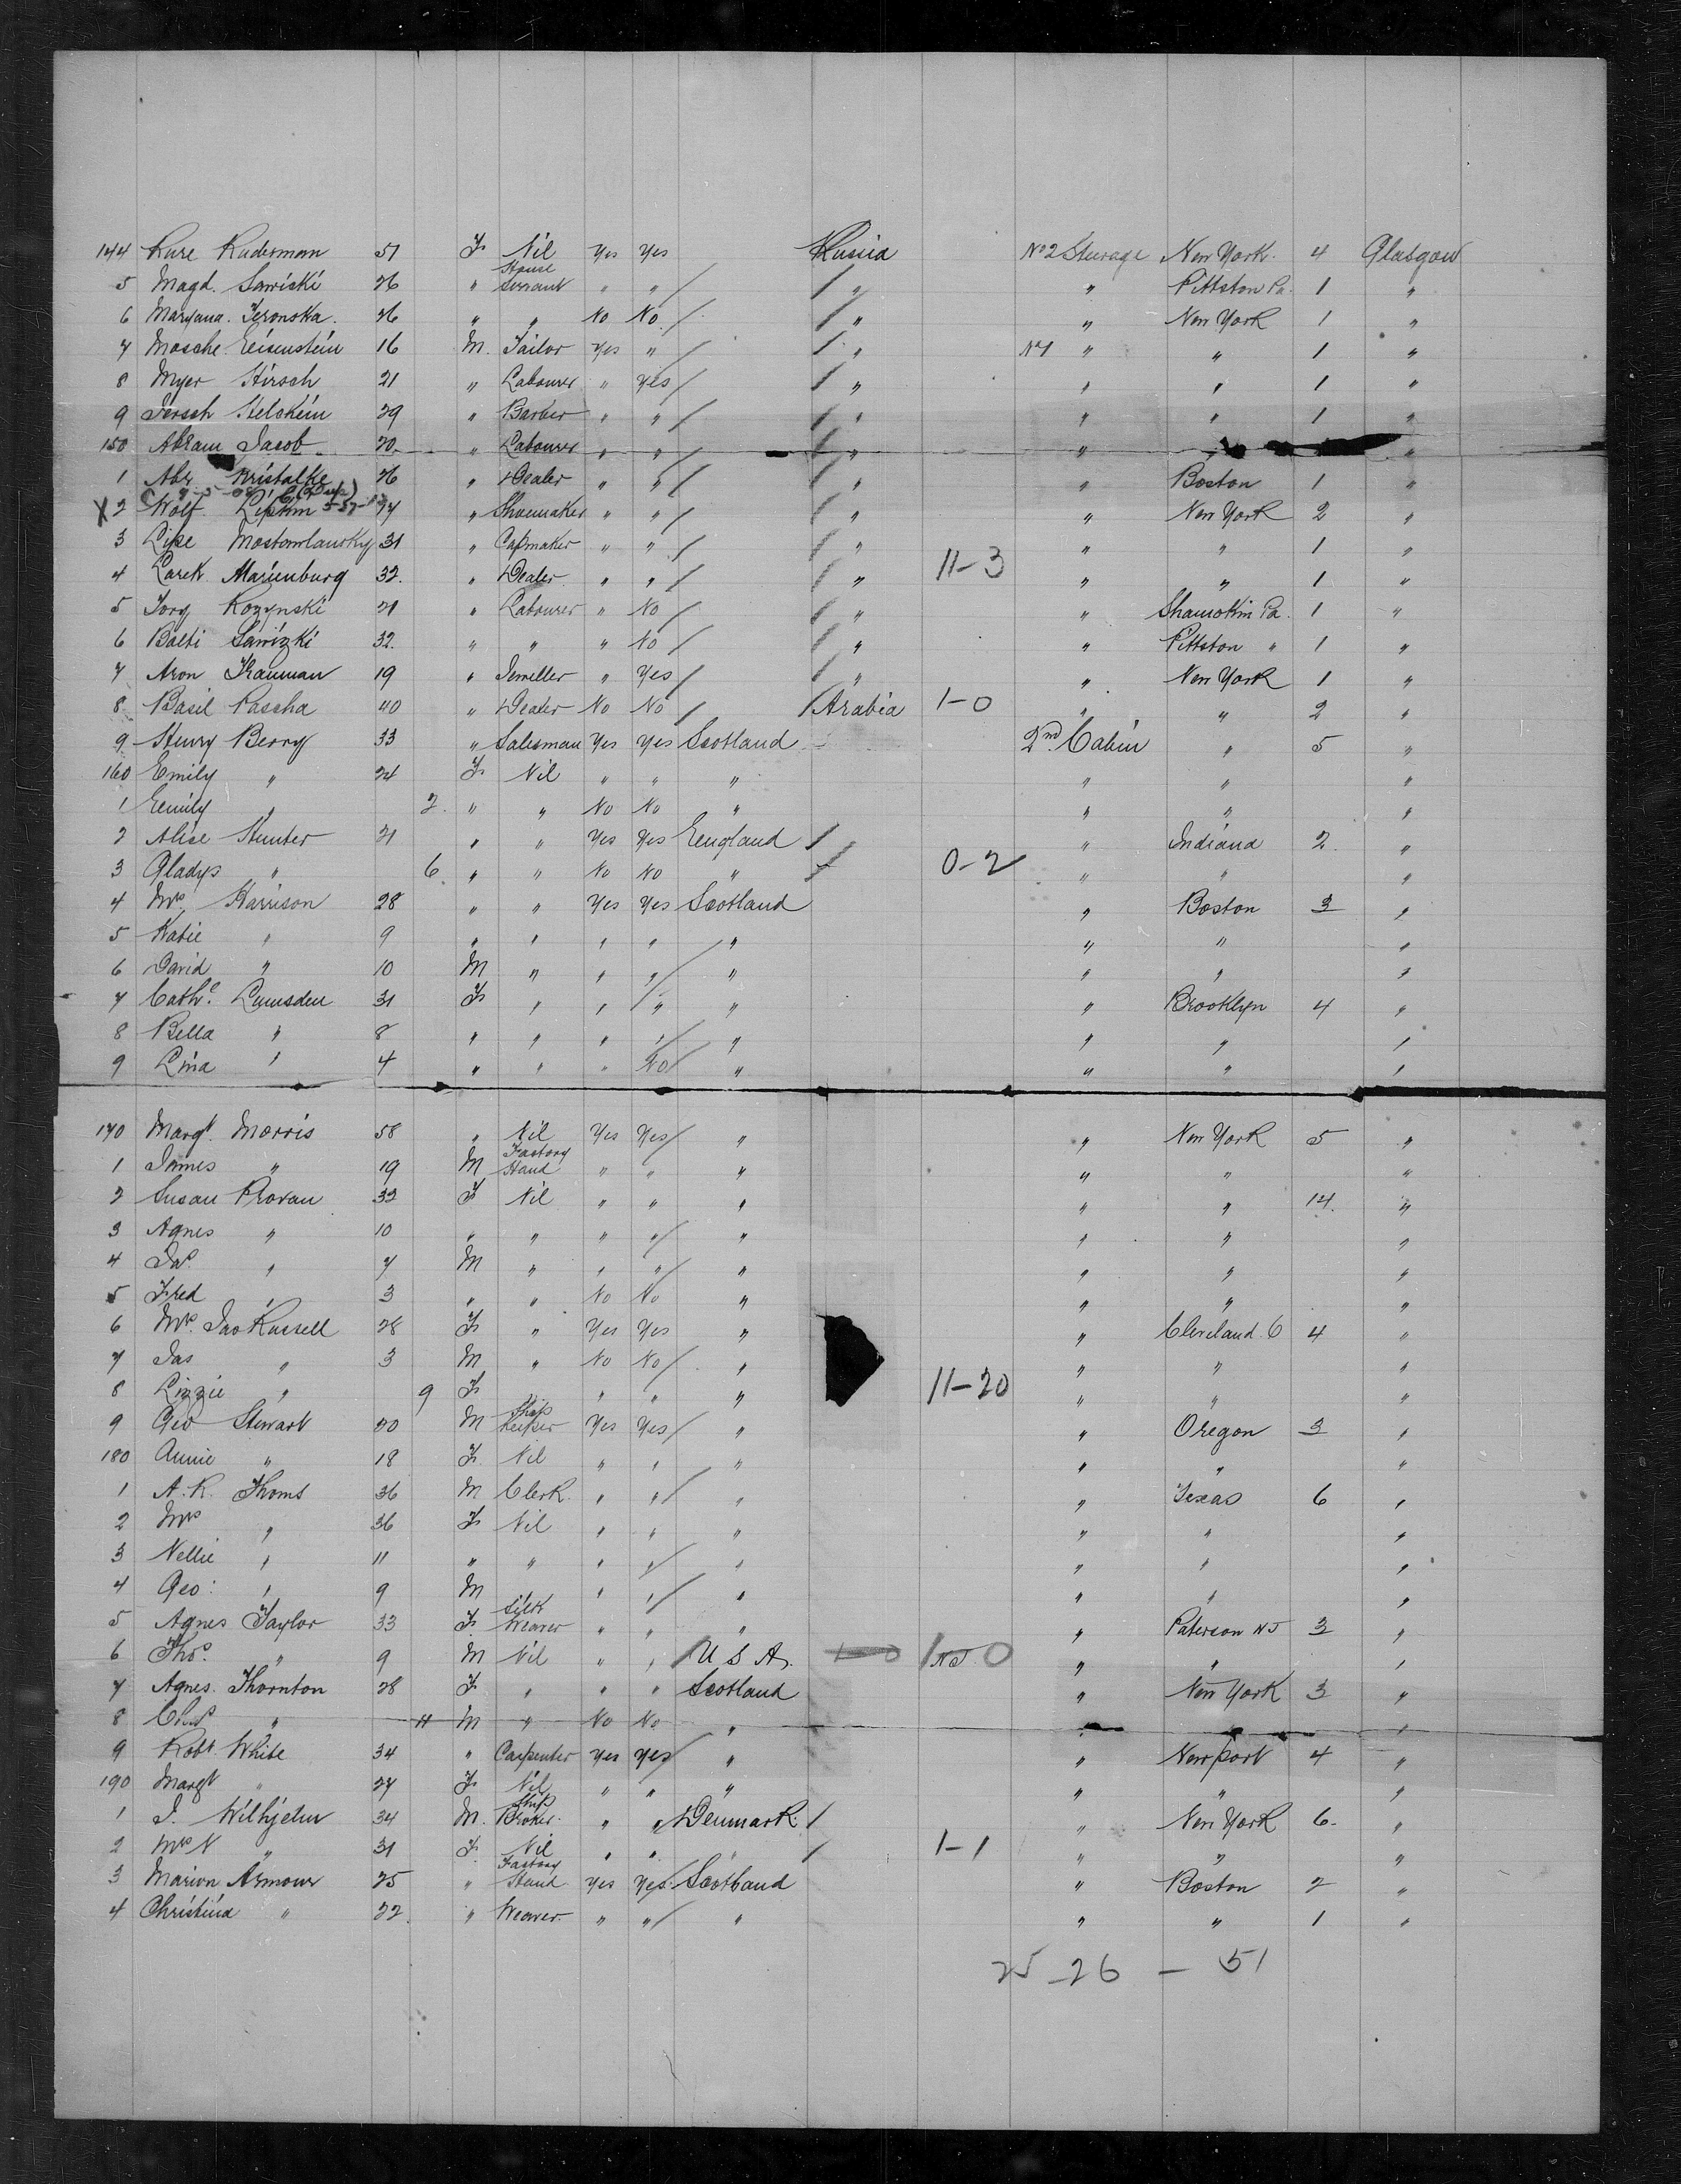 144 Rure Kuderman 51 F Nil Yes Yes Russia No 2 Steerage New York 4 Glasgow
5 Magd. Sawiski 26 " House Servant " " " " Pittston Pa. 1 "
6 Maryana. Jeronska. 26 " " No No " " New York 1 "
7 Mosche Eeisenstein 16 M. Tailor Yes " " No 1 " " 1 "
8 Myer Hirsch 21 " Labourer " Yes " " " 1 "
9 Jersch Helskein 29 " Barber " " " " " 1 "
150 Abram Jacob 20 " Labourer " " " "
1 Abr Kristalke 26 " Dealer " " " " Boston 1 "
X 2 Wolf. Lipkin 27 " Shoemaker " " " " New York 2 "
3 Lipe Mostomlansky 31 " Capmaker " " " " " 1 "
4 Larek Marienburg 32. " Dealer " " " 11-3 " " 1 "
5 Jorg Kozynski 21 " Labourer " No " " Shamokin Pa. 1 "
6 Balti Sawizki 32. " " " No " " Pittston " 1 "
7 Aron Trauman 19 " Jeweller " Yes " " New York 1 "
8 Basil Pascha 40 " Dealer No No Arabia 1-0 " " 2 "
9 Henry Berry 33 " Salesman Yes Yes Scotland 2nd Cabin " 5 "
160 Emily " 24 F Nil " " " " " "
1 Eemily " 2. " " No No " " " "
2 Alise Hunter 21 " " Yes Yes Eengland " Indiana 2. "
3 Gladys " 6 " " No No " 0-2 " " "
4 Mrs Harrison 28 " " Yes Yes Scotland " Boston 3 "
5 Katie " 9 " " " " " " " "
6 David " 10 M " " " " " " "
7 Cathe. Lumsden 31 F " " " " " Brooklyn 4 "
8 Bella " 8 " " " " " " " "
9 Lina " 4 " " " No " " " "
170 Margt. Morris 58 " Nil Yes Yes " " New York 5 "
1 James " 19 M Factory Hand " " " " " "
2 Susan Provan 32 F Nil " " " " " 14. "
3 Agnes " 10 " " " " " " " "
4 Jas " 7 M " " " " " " "
5 Fred " 3 " " No No " " " "
6 Mrs. Jas Russell 28 F " Yes Yes " " Cleveland. O 4 "
7 Jas " 3 M " No No " " " "
8 Lizzie " 9 F " " " 11-20 " " "
9 Geo Stewart 20 M Ship Keeper Yes Yes " " Oregon 3 "
180 Annie " 18 F Nil " " " " " "
1 A. R. Thoms 36 M Clerk. " " " " Texas 6 "
2 Mrs " 36 F Nil " " " " " "
3 Nellie " 11 " " " " " " " "
4 Geo: " 9 M " " " " " "
5 Agnes Taylor 33 F. Silk Weaver " " " " Paterson NJ 3 "
6 Thos. " 9 M Nil " " U S A. 1-0 1 NJ 0 " " "
7 Agnes. Thornton 28 F " " " Scotland " New York 3 "
8 Chas " 11 M " No No " " "
9 Robt White 34 " Carpenter Yes Yes " " Newport 4 "
190 Margt " 27 F Nil " " " " " "
1 J. Wilhjelm 34 M. Ship Broker. " " Denmark. " New York 6. "
2 Mrs N " 31 F. Nil " " " 1-1 " " "
3 Marion Armour 25 " Factory Hand Yes Yes. Scotland " Boston 2 "
4 Christina " 22. " Weaver. " " " " " 1 "
25-26 - 51